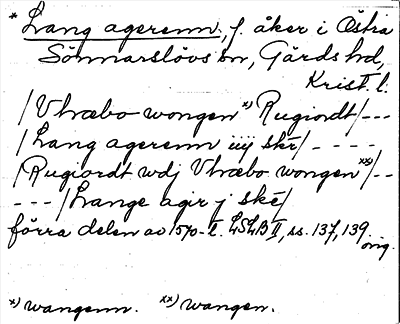 * Lang agerenn, f. åker i Östra
Sönnarslövs sn, Gärds hd,
Krist. l.
/Vhræbo wongen *) Rugiordt/---
/Lang agerenn iiij skr/----
/Rugiordt wdj Vhræbo wongen **)/--
---/Lange agir j ske/
förra delen av 1570-t. LSLB II, ss. 137, 139
orig.
*) wangenn. **) wangen.